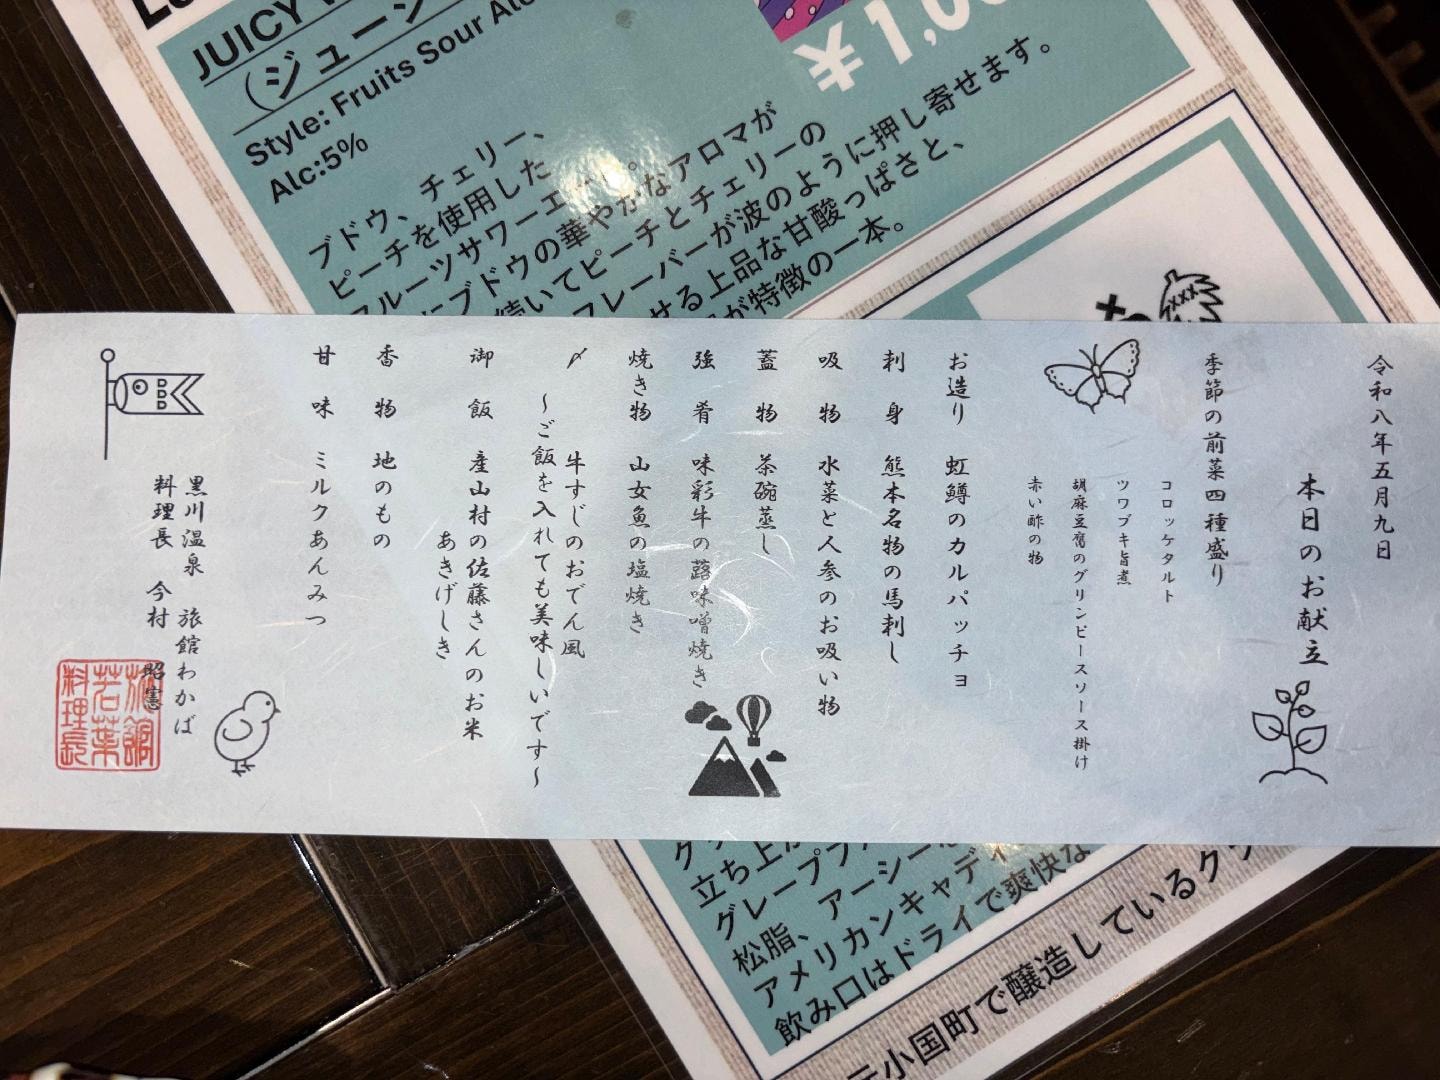 令和八年五月九日
本日のお献立
季節の前菜四種盛り
コロッケタルト
ツワブキ旨煮
胡麻豆腐のグリンピースソース掛け
赤い酢の物
お造り 虹鱒のカルパッチョ
刺身 熊本名物の馬刺し
吸物 水菜と人参のお吸い物
蓋物 茶碗蒸し
強肴 味彩牛の蕗味噌焼き
焼き物 山女魚の塩焼き
〆 牛すじのおでん風
〜ご飯を入れても美味しいです〜
御飯 産山村の佐藤さんのお米
あきげしき
香物 地のもの
甘味 ミルクあんみつ
黒川温泉 旅館わかば
料理長 今村 昭憲
旅館
若葉
料理長
JUICY
(ジューシ
Style: Fruits Sour Ale
Alc:5%
¥1,0
ブドウ、チェリー、
ピーチを使用した
フルーツサワーエ
ブドウの華やかなアロマが
続いてピーチとチェリーの
フレーバーが波のように押し寄せます。
せる上品な甘酸っぱさと、
が特徴の一本。
立ち上が
グレープフ
松脂、アーシー
アメリカンキャディ
飲み口はドライで爽快な
小国町で醸造しているク